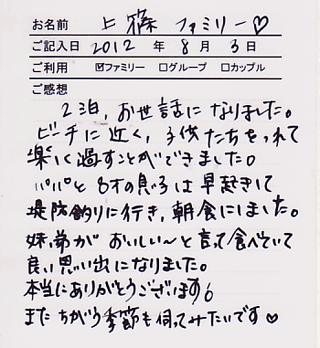 お名前 上篠 ファミリー♡
ご記入日 2012 年 8 月 3 日
ご利用 ☑ファミリー □グループ □カップル
ご感想
2泊、お世話になりました。
ビーチに近く、子供たちをつれて
楽しく過すことができました。
パパと8才の息子は早起きして
堤防釣りに行き、朝食にしました。
妹、弟がおいしい〜と言って食べていて
良い思い出になりました。
本当にありがとうございます。
またちがう季節も伺ってみたいです♡